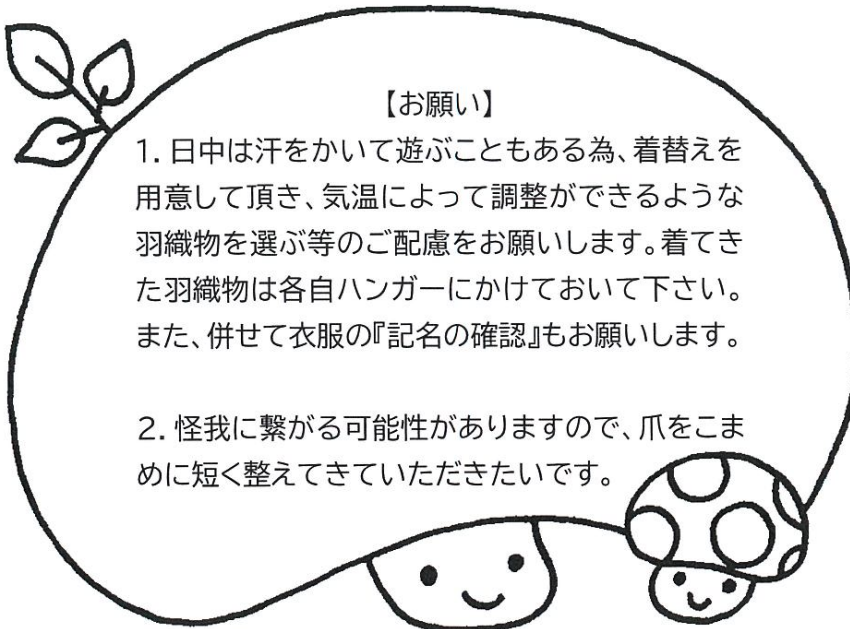 【お願い】
1. 日中は汗をかいて遊ぶこともある為、着替えを
用意して頂き、気温によって調整ができるような
羽織物を選ぶ等のご配慮をお願いします。着てき
た羽織物は各自ハンガーにかけておいて下さい。
また、併せて衣服の『記名の確認』もお願いします。
2. 怪我に繋がる可能性がありますので、爪をこま
めに短く整えてきていただきたいです。